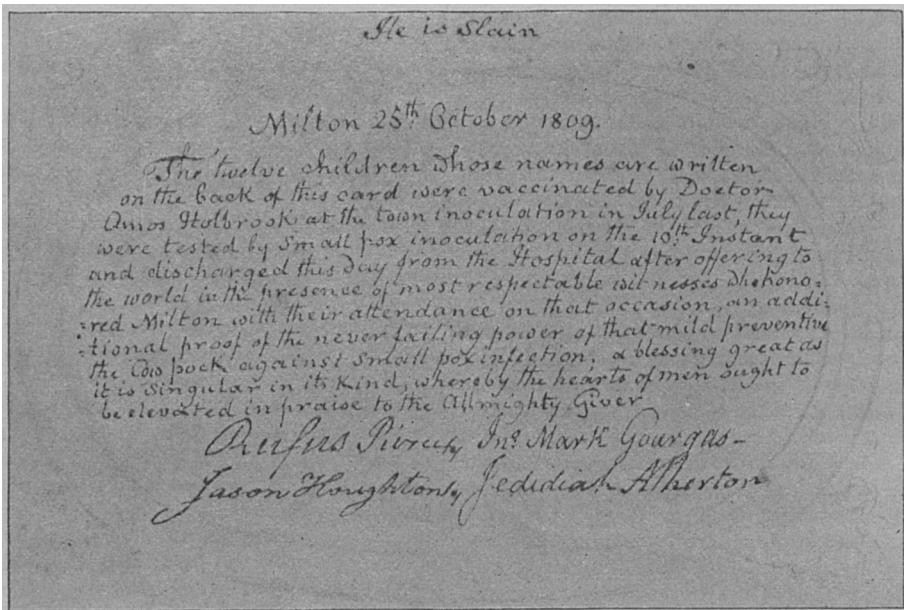 He is Slain
Milton 25th October 1809.
The twelve children whose names are written
on the back of this card were vaccinated by Doctor
Amos Holbrook at the town inoculation in July last, they
were tested by Small pox inoculation on the 10th Instant
and discharged this day from the Hospital after offering to
the world in the presence of most respectable witnesses who hono=
=red Milton with their attendance on that occasion, an addi=
=tional proof of the never failing power of that mild preventive
the Cow pock against Small pox infection; a blessing great as
it is Singular in its kind, whereby the hearts of men ought to
be elevated in praise to the Allmighty Giver
Rufus Pierce, Jno. Mark Gourgas-
Jason Houghton, Jedidiah Atherton